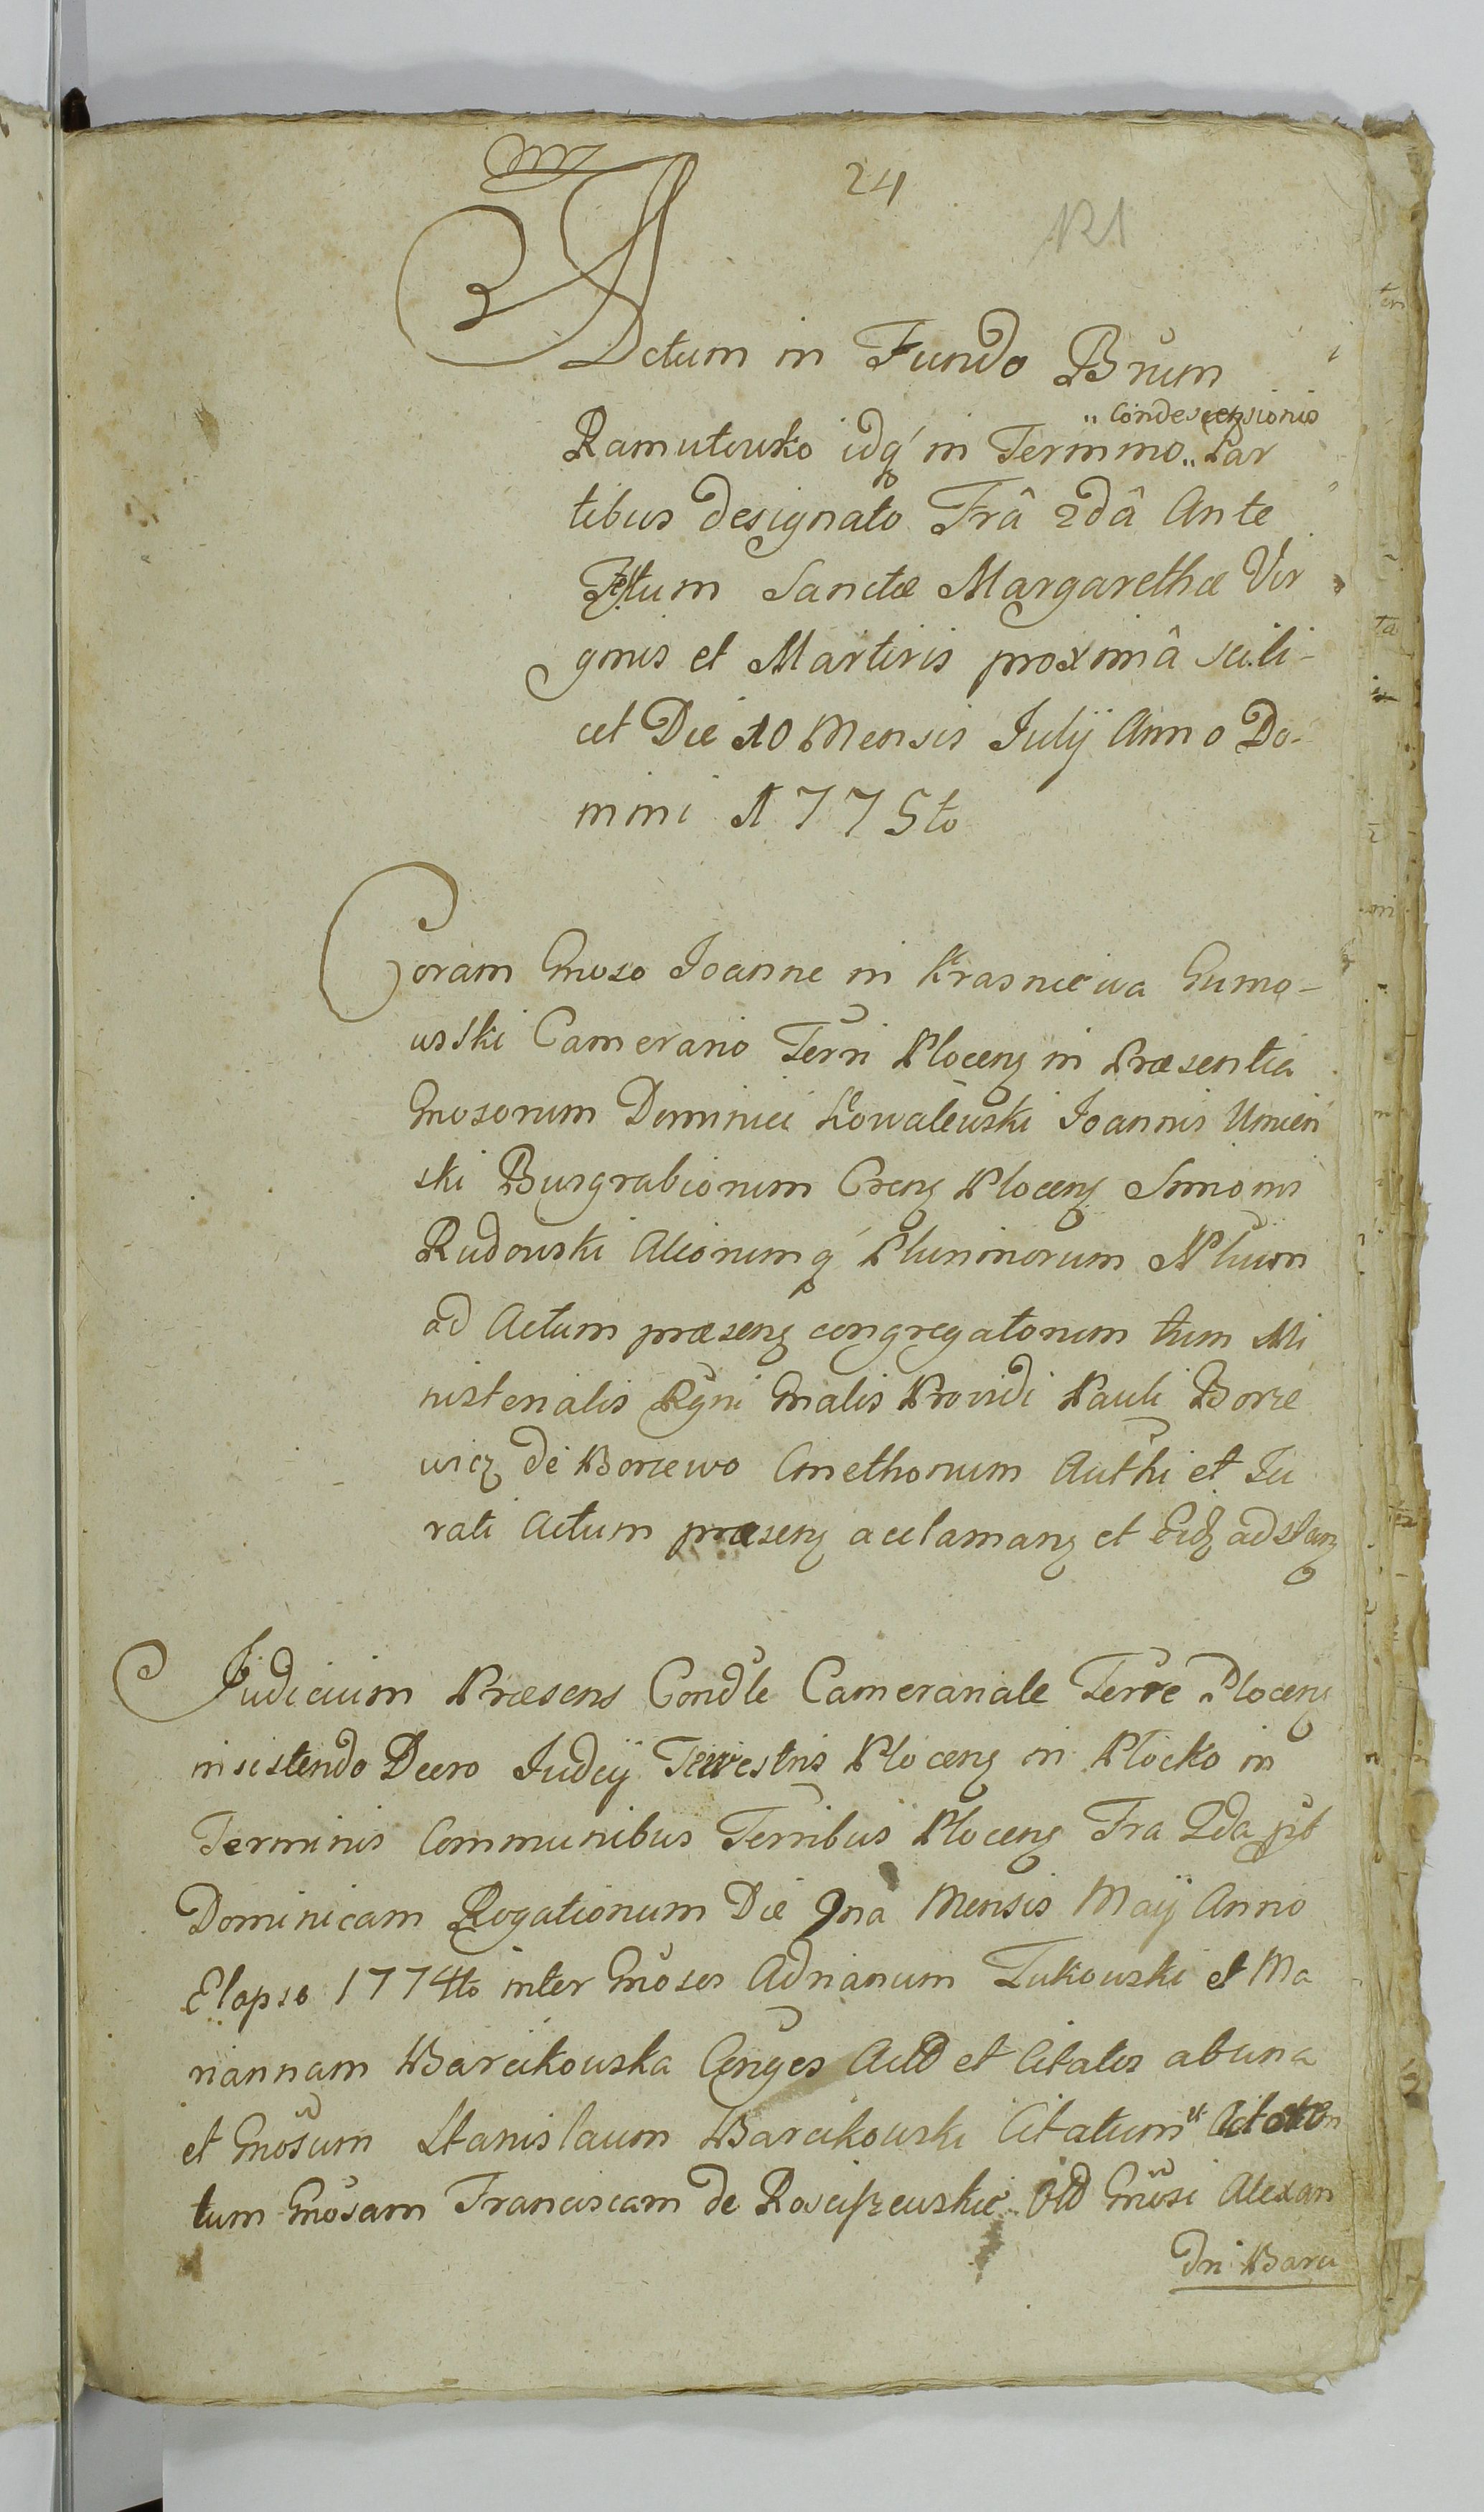 24
121
Actum in Fundo Bnum
„ Condescensionis
Ramutowko idq' in Termino „ Par
tibus designato Frâ 2dâ Ante
Festum Sanctæ Margarethæ Vir
ginis et Martiris proximâ scili-
cet Die 10 Mensis Julÿ Anno Do-
mini 1775to
Coram Gnoso Joanne in Krasniewa Gumo-
wski Camerario Terri Plocenʒ in Præsentia
Gnosorum Dominici Kowalewski Joannis Umień
ski Burgrabiorum Crenʒ Plocenʒ Simonis
Rudowski Aliorumq' Plurimorum Nblium
ad Actum præsenʒ congregatorum tum Mi
nisterialis Rgni Gnalis Providi Pauli Borze
wicz de Borzewo Cmethonum Authi et Ju
rati Actum præsenʒ acclamanʒ et Eidʒ adstanʒ
Judicium Præsens Condle Camerariale Terre Plocenʒ
insistendo Decro Judcÿ Terrestris Plocenʒ in Płocko in
Terminis Communibus Terribus Plocenʒ Fra 2da pst
Dominicam Rogationum Die 9na Mensis Maÿ Anno
Elapso 1774to inter Gnosos Adrianum Żukowski et Ma
riannam Barcikowska Conges Actb et Citatos ab una
et Gnosum Stanislaum Barcikowski Citatum et Actorem
tum Gnosam Franciscam de Rosciszewskie Old Gnosi Alexan
dri Barci